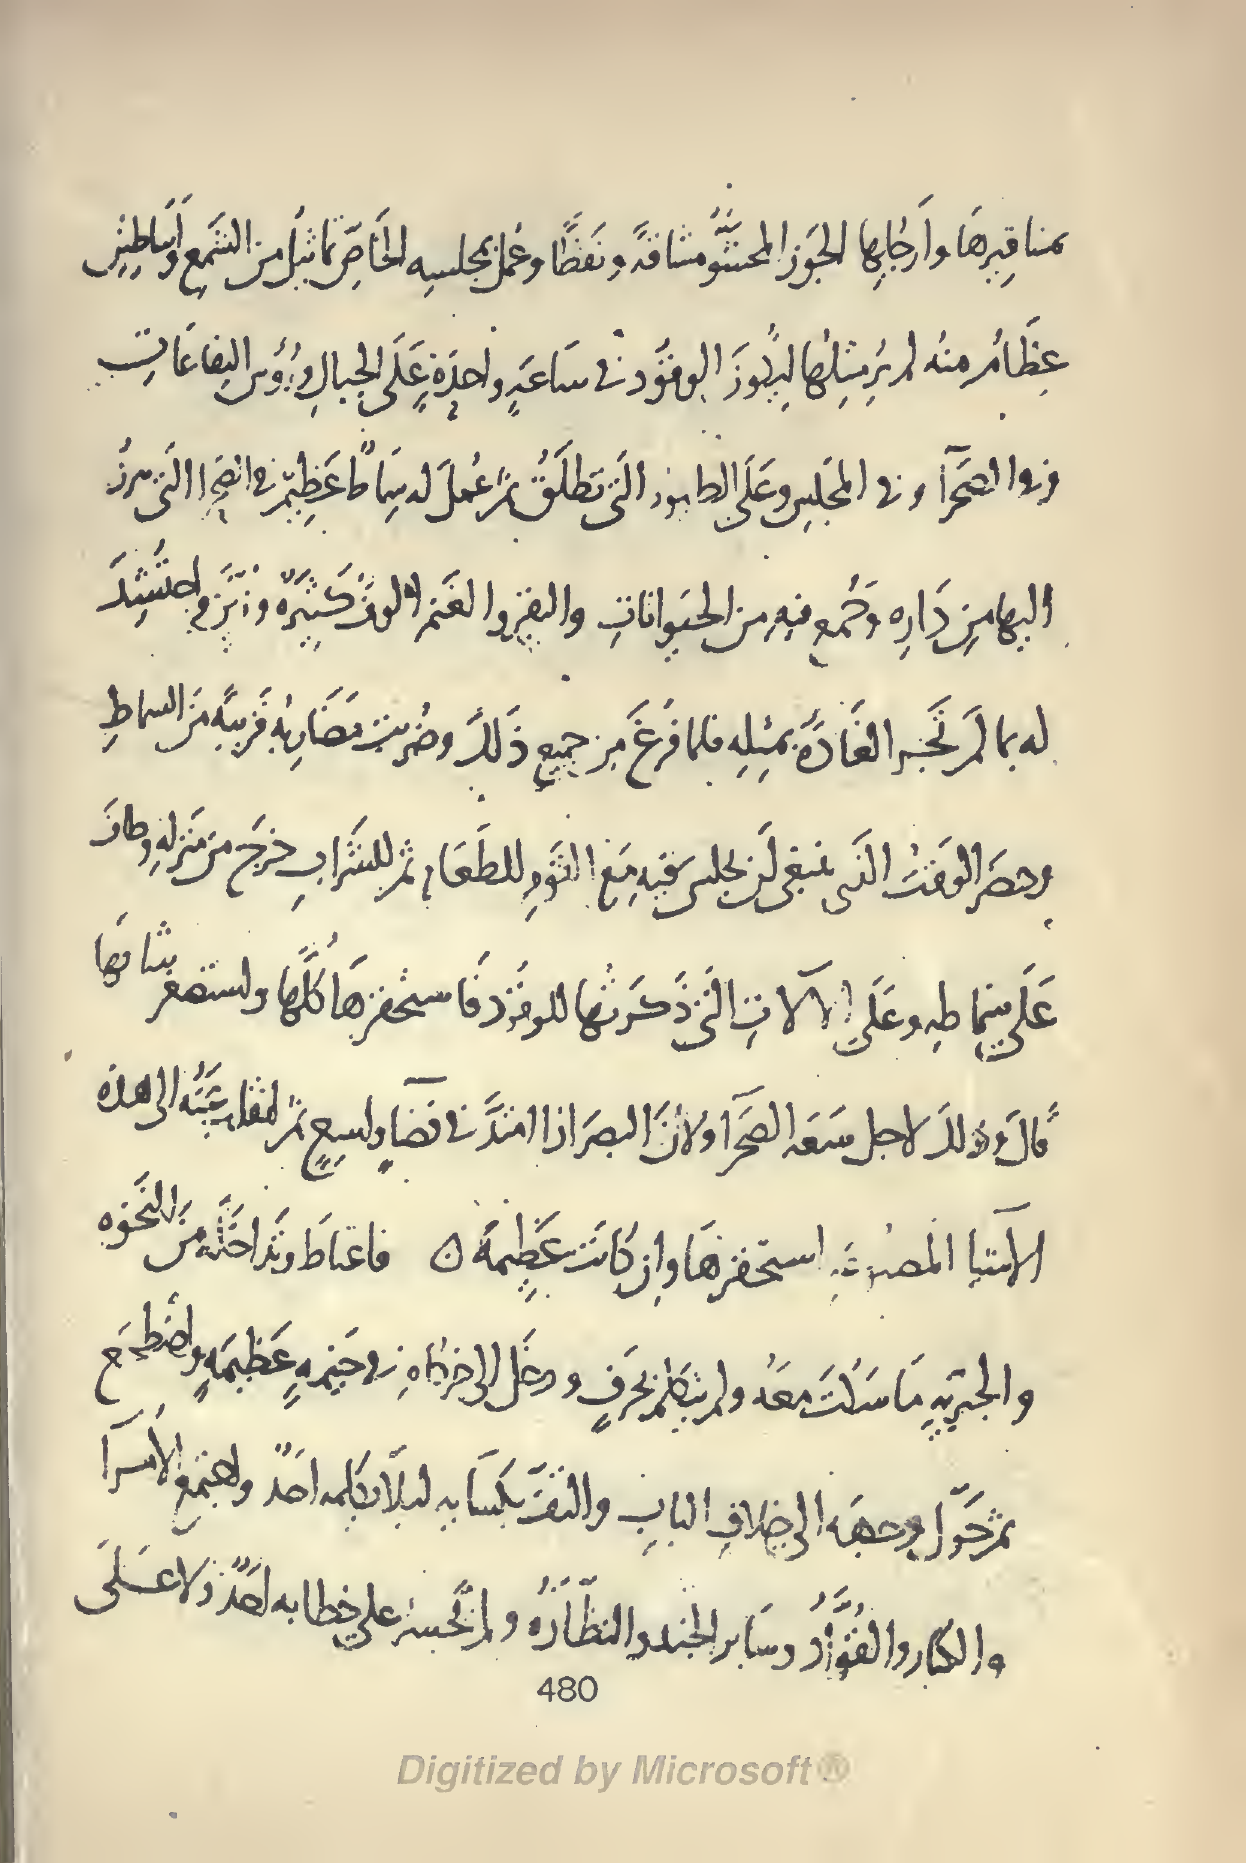 بمناقيرها وأرجلها الجوز المحشو مشاقة ونفطا وعمل بمجلسه الخاص تماثيل من الشمع وأساطين
عظام منه لم ير مثلها ليكون الوقود في ساعة واحدة على الجبال ورؤوس اليفاعات
وفي الصحراء وفي المجلس وعلى الطيور التي تطلق ثم عمل له سماط عظيم في الصحراء التي برز
اليها من داره وجمع فيه من الحيوانات والبقر والغنم الوف كثيرة وزين واحتشد
له بما لم تجر العادة بمثله فلما فرغ من جميع ذلك وضربت مضاربه قريبة من السماط
وحضر الوقت الذي ينبغي أن يجلس فيه مع القوم للطعام ثم للشراب خرج من منزله وطاف
على سماطه وعلى الآلات التي ذكرتها للوقود فاستحقرها كلها واستصغر شانها
قال وذلك لاجل سعة الصحراء ولأن البصر اذا امتد في فضاء واسع ثم انقلب عنه الى هذه
الاشياء المصنوعة استحقرها وان كانت عظيمة ن فاغتاظ وتداخله من النخوة
والجبرية ما سكت معه ولم يتكلم بحرف ودخل الى خركاه في خيمة عظيمة واضطجع
ثم حول وجهه الى خلاف الباب والتف بكسائه لئلا يكلمه احد واجتمع الأمراء
والكبار والقواد وسائر الجند والنظارة ولم يجسر على خطابه احد ولا على
480
Digitized by Microsoft®